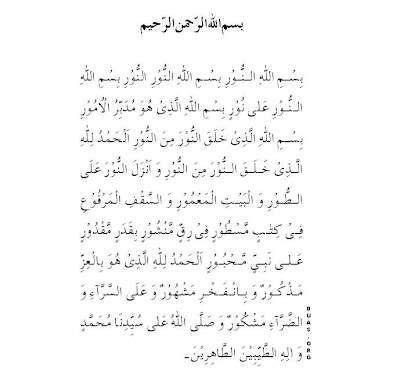 بسم الله الرّحمن الرّحيم
بِسْمِ اللهِ النُّوْرِ بِسْمِ اللهِ النُّوْرِ النُّوْرِ بِسْمِ اللهِ
النُّوْرِ عَلى نُوْرٍ بِسْمِ اللهِ الَّذِىْ هُوَ مُدَبِّرُ الْاُمُوْرِ
بِسْمِ اللهِ الَّذِىْ خَلَقَ النُّوْرَ مِنَ النُّوْرِ اَلْحَمْدُ لِلّٰهِ
الَّذِىْ خَلَقَ النُّوْرَ مِنَ النُّوْرِ وَ اَنْزَلَ النُّوْرَ عَلَى
الطُّوْرِ وَ الْبَيْتِ الْمَعْمُوْرِ وَ السَّقْفِ الْمَرْفُوْعِ
فِىْ كِتٰبٍ مَسْطُوْرٍ فِىْ رِقٍّ مَّنْشُوْرٍ بِقَدَرٍ مَّقْدُوْرٍ
عَلى نَبِيٍّ مَّحْبُوْرٍ اَلْحَمْدُ لِلّٰهِ الَّذِىْ هُوَ بِالْعِزِّ
مَذْكُوْرٌ وَ بِالْفَخْرِ مَشْهُوْرٌ وَ عَلَى السَّرَّآءِ وَ
الضَّرَّآءِ مَشْكُوْرٌ وَ صَلَّى اللهُ عَلى سَيِّدِنَا مُحَمَّدٍ
وَ الِهِ الطَّيِّبِيْنَ الطَّاهِرِيْنَ۔
DUAS.ORG